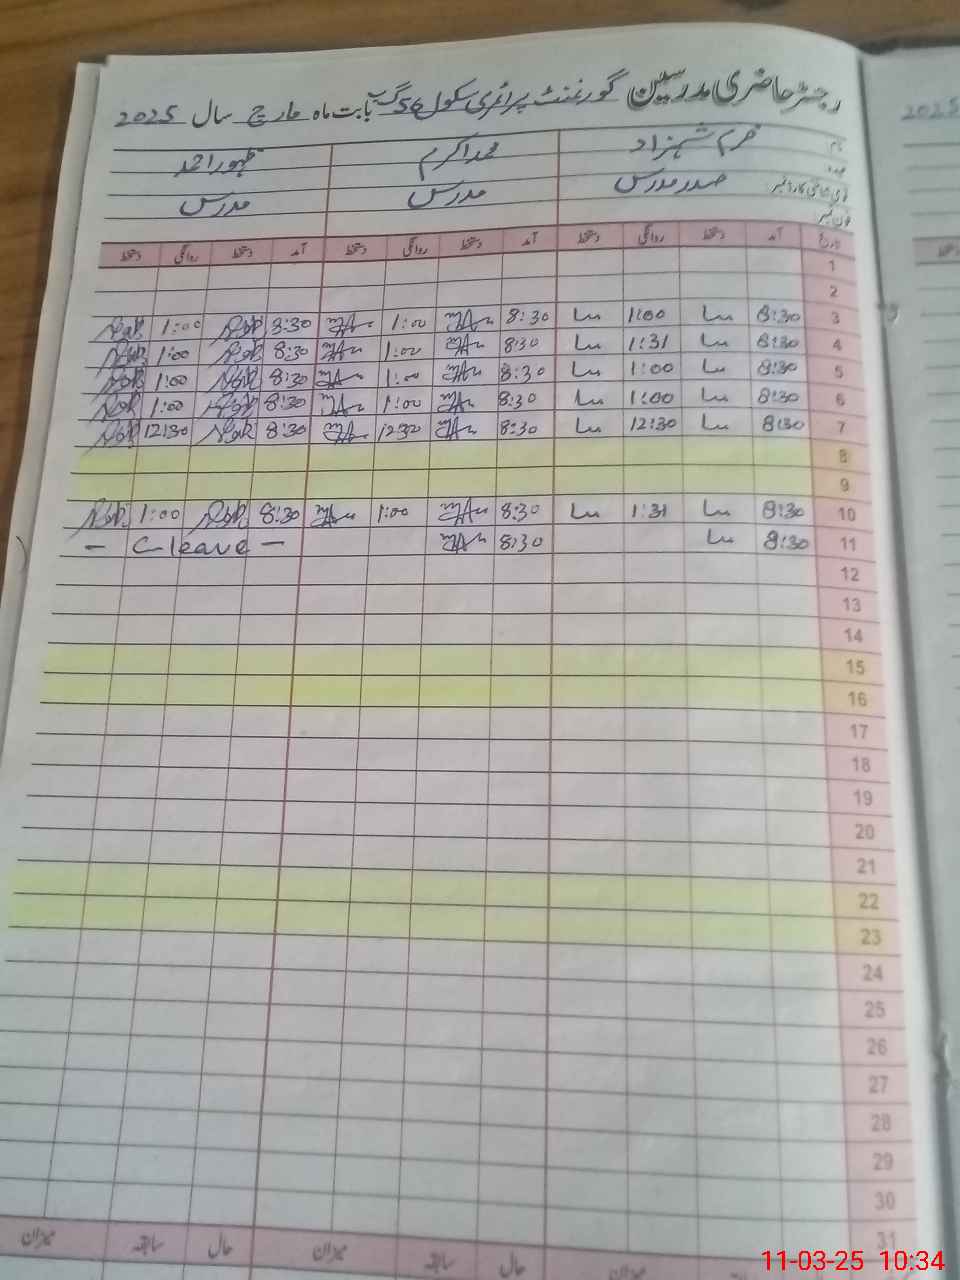 رجسٹر حاضری مدرسین گورنمنٹ پرائمری سکول 56 گ ب بابت ماہ مارچ سال 2025
نام خرم شہزاد محمد اکرم ظہور احمد
عہدہ صدر مدرس مدرس مدرس
فون نمبر
تاریخ آمد دستخط روانگی دستخط آمد دستخط روانگی دستخط آمد دستخط روانگی دستخط
1
2
3 8:30 1:00 8:30 1:00 8:30 1:00
4 8:30 1:31 8:30 1:00 8:30 1:00
5 8:30 1:00 8:30 1:00 8:30 1:00
6 8:30 1:00 8:30 1:00 8:30 1:00
7 8:30 12:30 8:30 12:30 8:30 12:30
8
9
10 8:30 1:31 8:30 1:00 8:30 1:00
11 8:30 8:30 - C leave -
12
13
14
15
16
17
18
19
20
21
22
23
24
25
26
27
28
29
30
31
میزان حال سابقہ میزان حال سابقہ میزان
2025
11-03-25 10:34